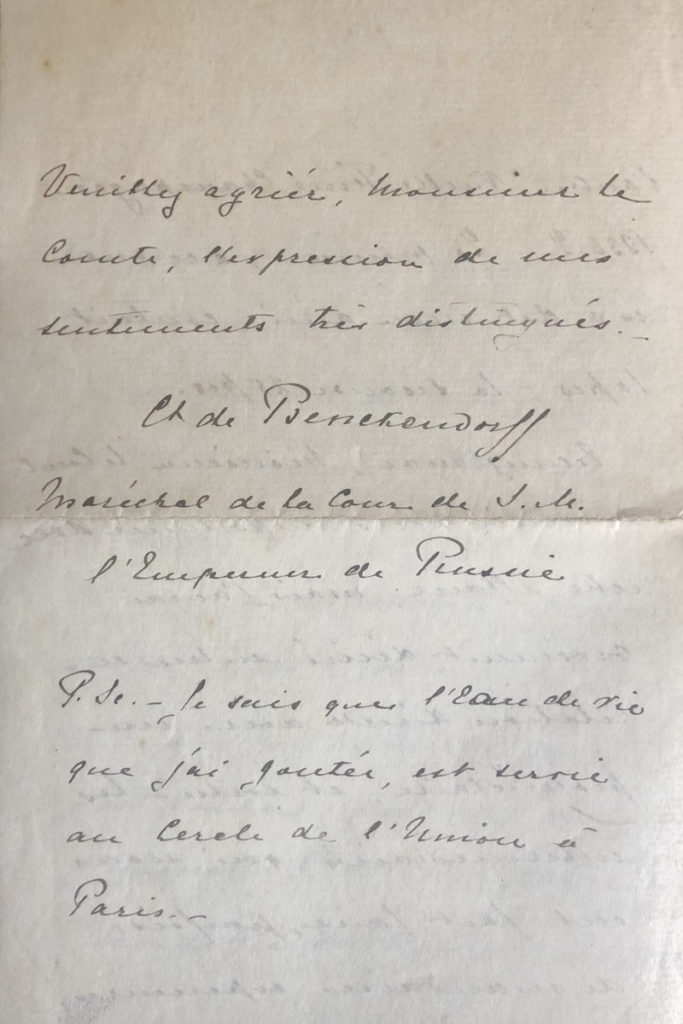 Veuillez agréer, Monsieur le
Comte, l'expression de mes
sentiments très distingués.
Ct de Benckendorff
Maréchal de la Cour de S. M.
l'Empereur de Russie
P. Sc. - Je sais que l'Eau de vie
que j'ai goutée, est servie
au Cercle de l'Union à
Paris. -